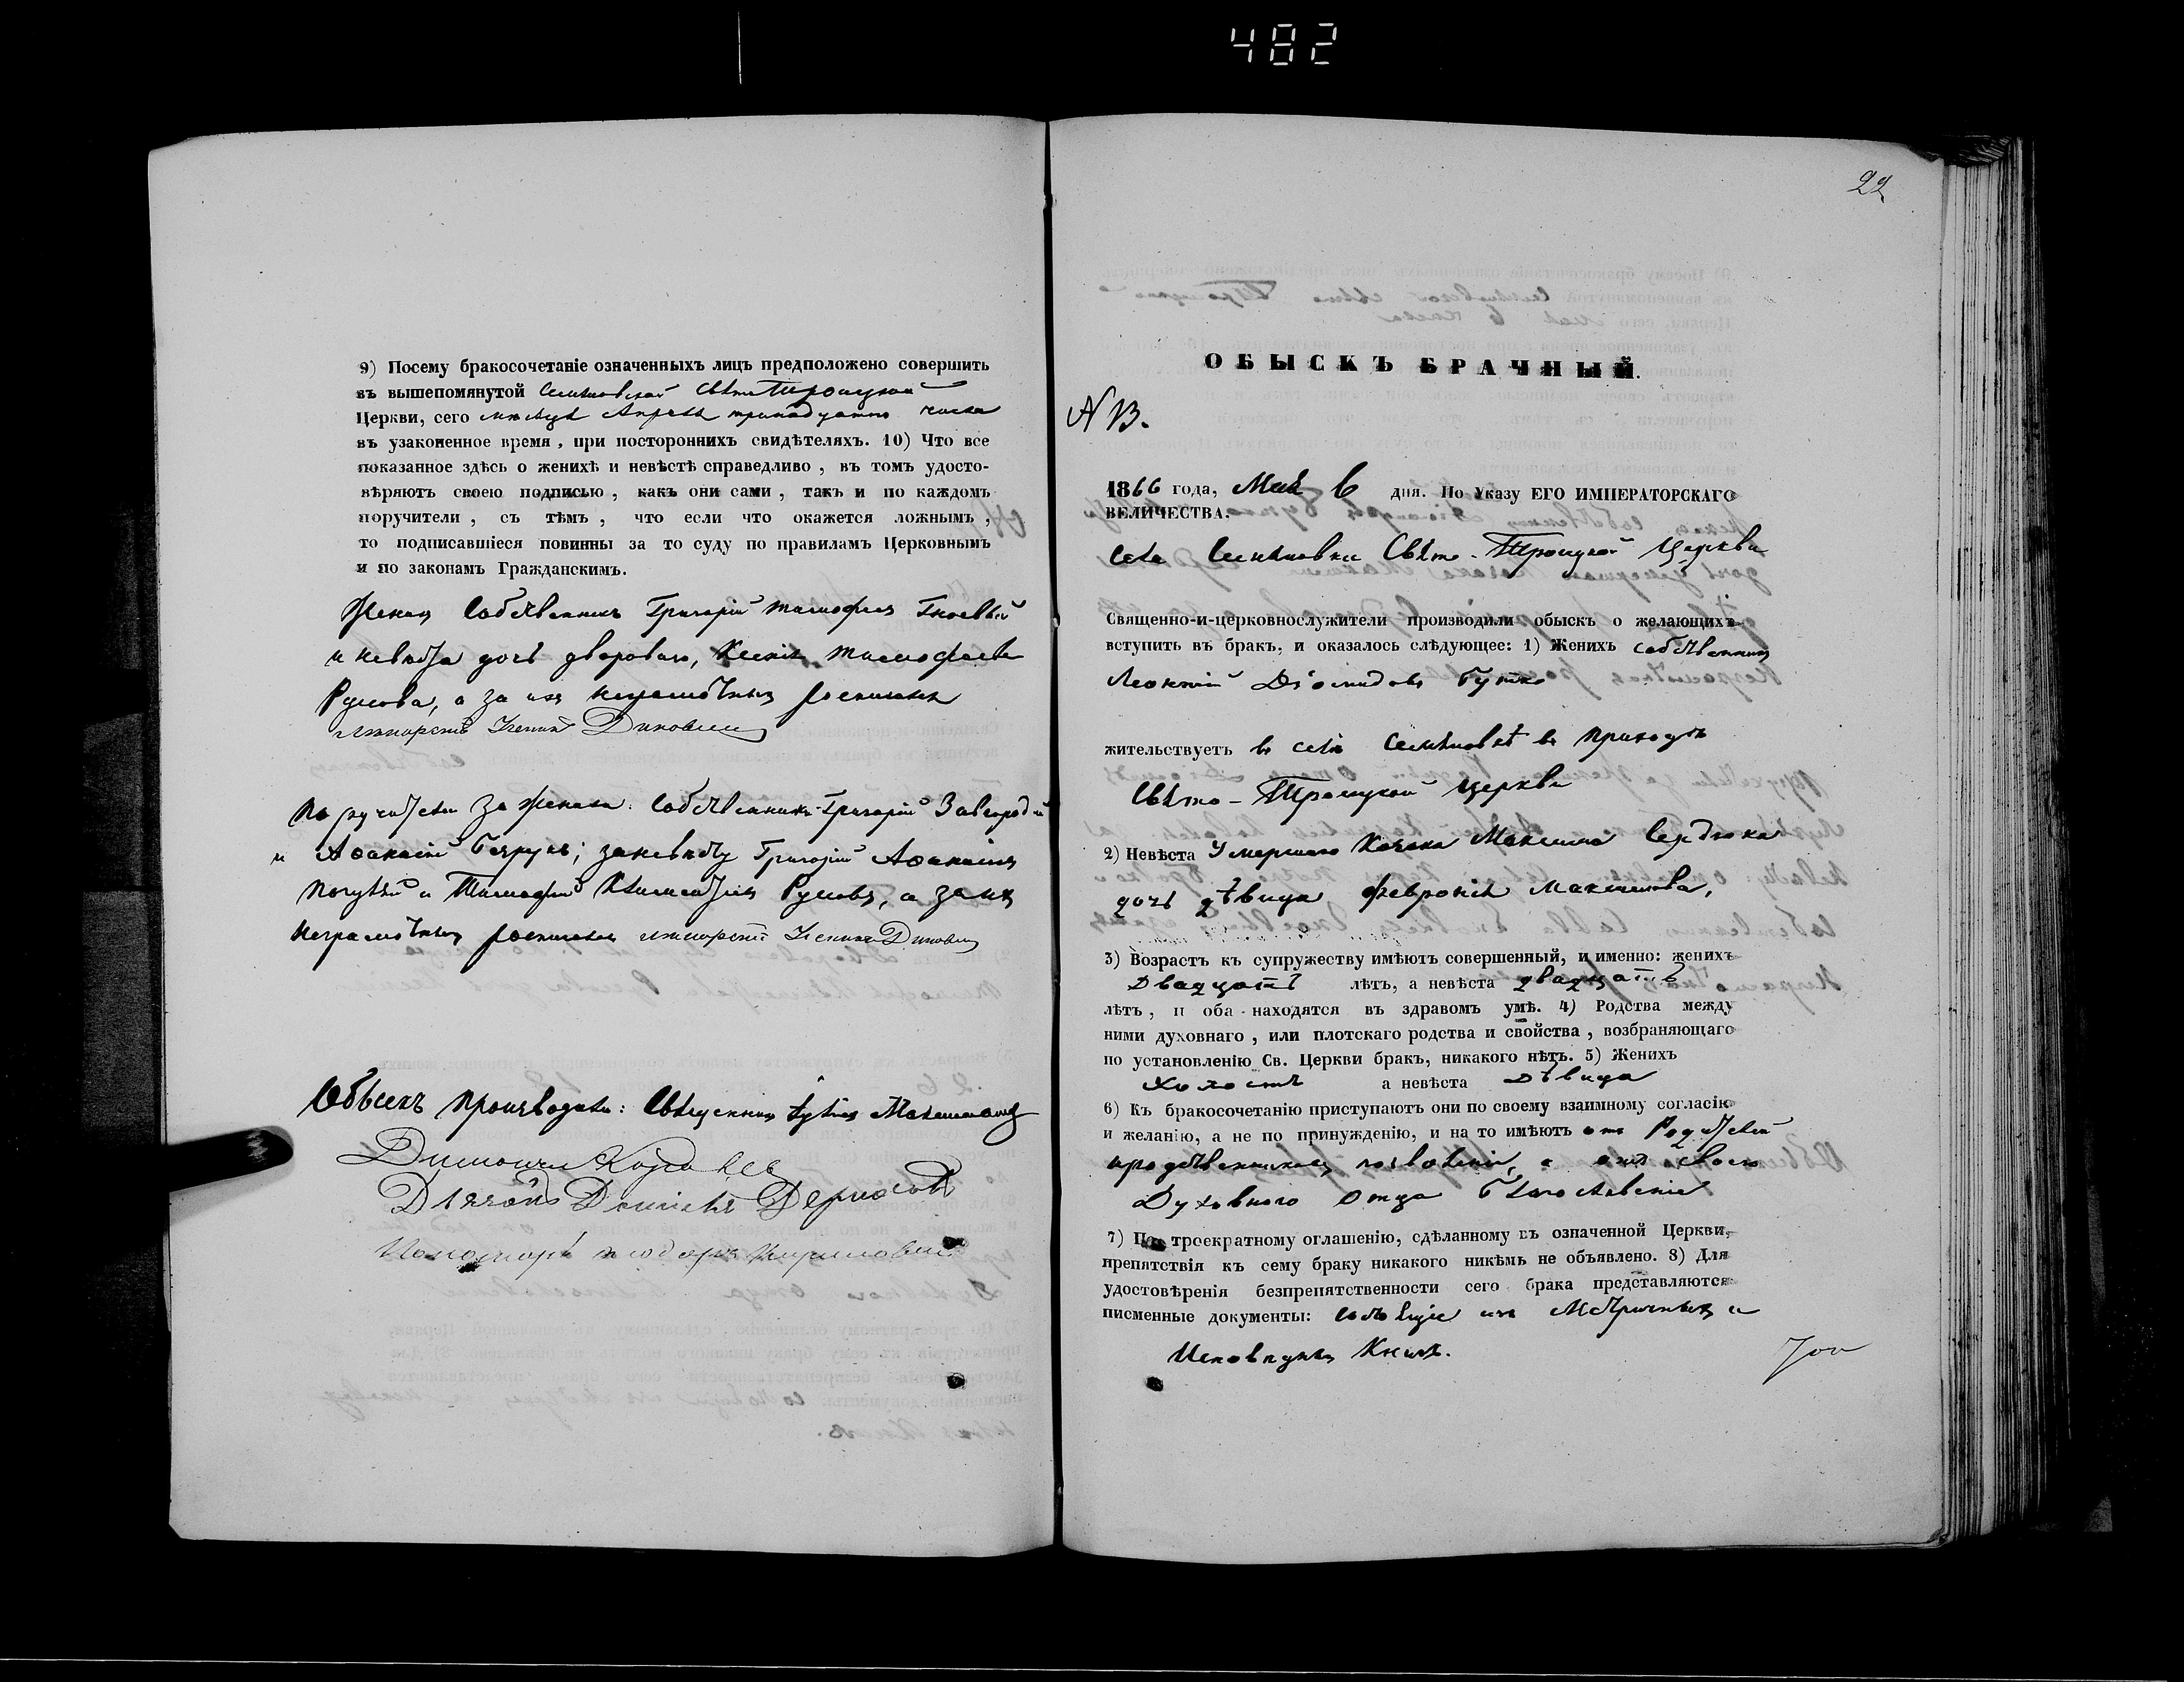 482
9) Посему бракосочетаніе означенныхъ лицъ предположено совершить
въ вышепомянутой Свято Троицкой
Церкви, сего месяца Апреля числа
въ узаконенное время, при постороннихъ свидѣтеляхъ. 10) Что все
показанное здѣсь о женихѣ и невѣстѣ справедливо, въ томъ удосто-
вѣряютъ своею подписью, какъ они сами, такъ и по каждомъ
поручители, съ тѣмъ, что если что окажется ложнымъ,
то подписавшіеся повинны за то суду по правиламъ Церковнымъ
и по законамъ Гражданскимъ.
Жених Собственникъ Григорій Тимофеев Гноевый
и невеста дочь дворового, Ксенія Тимофеева
Румова, а за их неграмотных росписался
Поручители за жениха: собственники Григорій Завгородній
и Аѳанасій за невесту Григорій Аѳанасіев
и Тимофей Румовъ, а за них
неграмотных росписался
Обыскъ производили: Священник Максимович
Дьячокъ
Пономарь
22
ОБЫСКЪ БРАЧНЫЙ.
N 13.
1866 года, Мая 6 дня. По Указу ЕГО ИМПЕРАТОРСКАГО
ВЕЛИЧЕСТВА.
села Семѣновки Свято-Троицкой Церкви
Священно-и-церковнослужители производили обыскъ о желающихъ
вступить въ бракъ, и оказалось слѣдующее: 1) Женихъ собственник
Леонтій Діомидовъ Бутко
жительствуетъ въ селѣ Семѣновкѣ въ приходѣ
Свято-Троицкой Церкви
2) Невѣста Умершаго Козака Максима Сердюка
дочь дѣвица Февронія Максимова,
3) Возрастъ къ супружеству имѣютъ совершенный, и именно: женихъ
двадцать лѣтъ, а невѣста двадцать
лѣтъ, и оба находятся въ здравомъ умѣ. 4) Родства между
ними духовнаго, или плотскаго родства и свойства, возбраняющаго
по установленію Св. Церкви бракъ, никакого нѣтъ. 5) Женихъ
холостъ а невѣста дѣвица
6) Къ бракосочетанію приступаютъ они по своему взаимному согласію
и желанію, а не по принужденію, и на то имѣютъ отъ Родителей
и родственников позволеніе, а отъ своего
Духовного Отца благословеніе
7) По троекратному оглашенію, сдѣланному въ означенной Церкви,
препятствія къ сему браку никакого никѣмъ не объявлено. 8) Для
удостовѣренія безпрепятственности сего брака представляются
писменные документы: изъ Метричных и
Исповедных Книгъ.